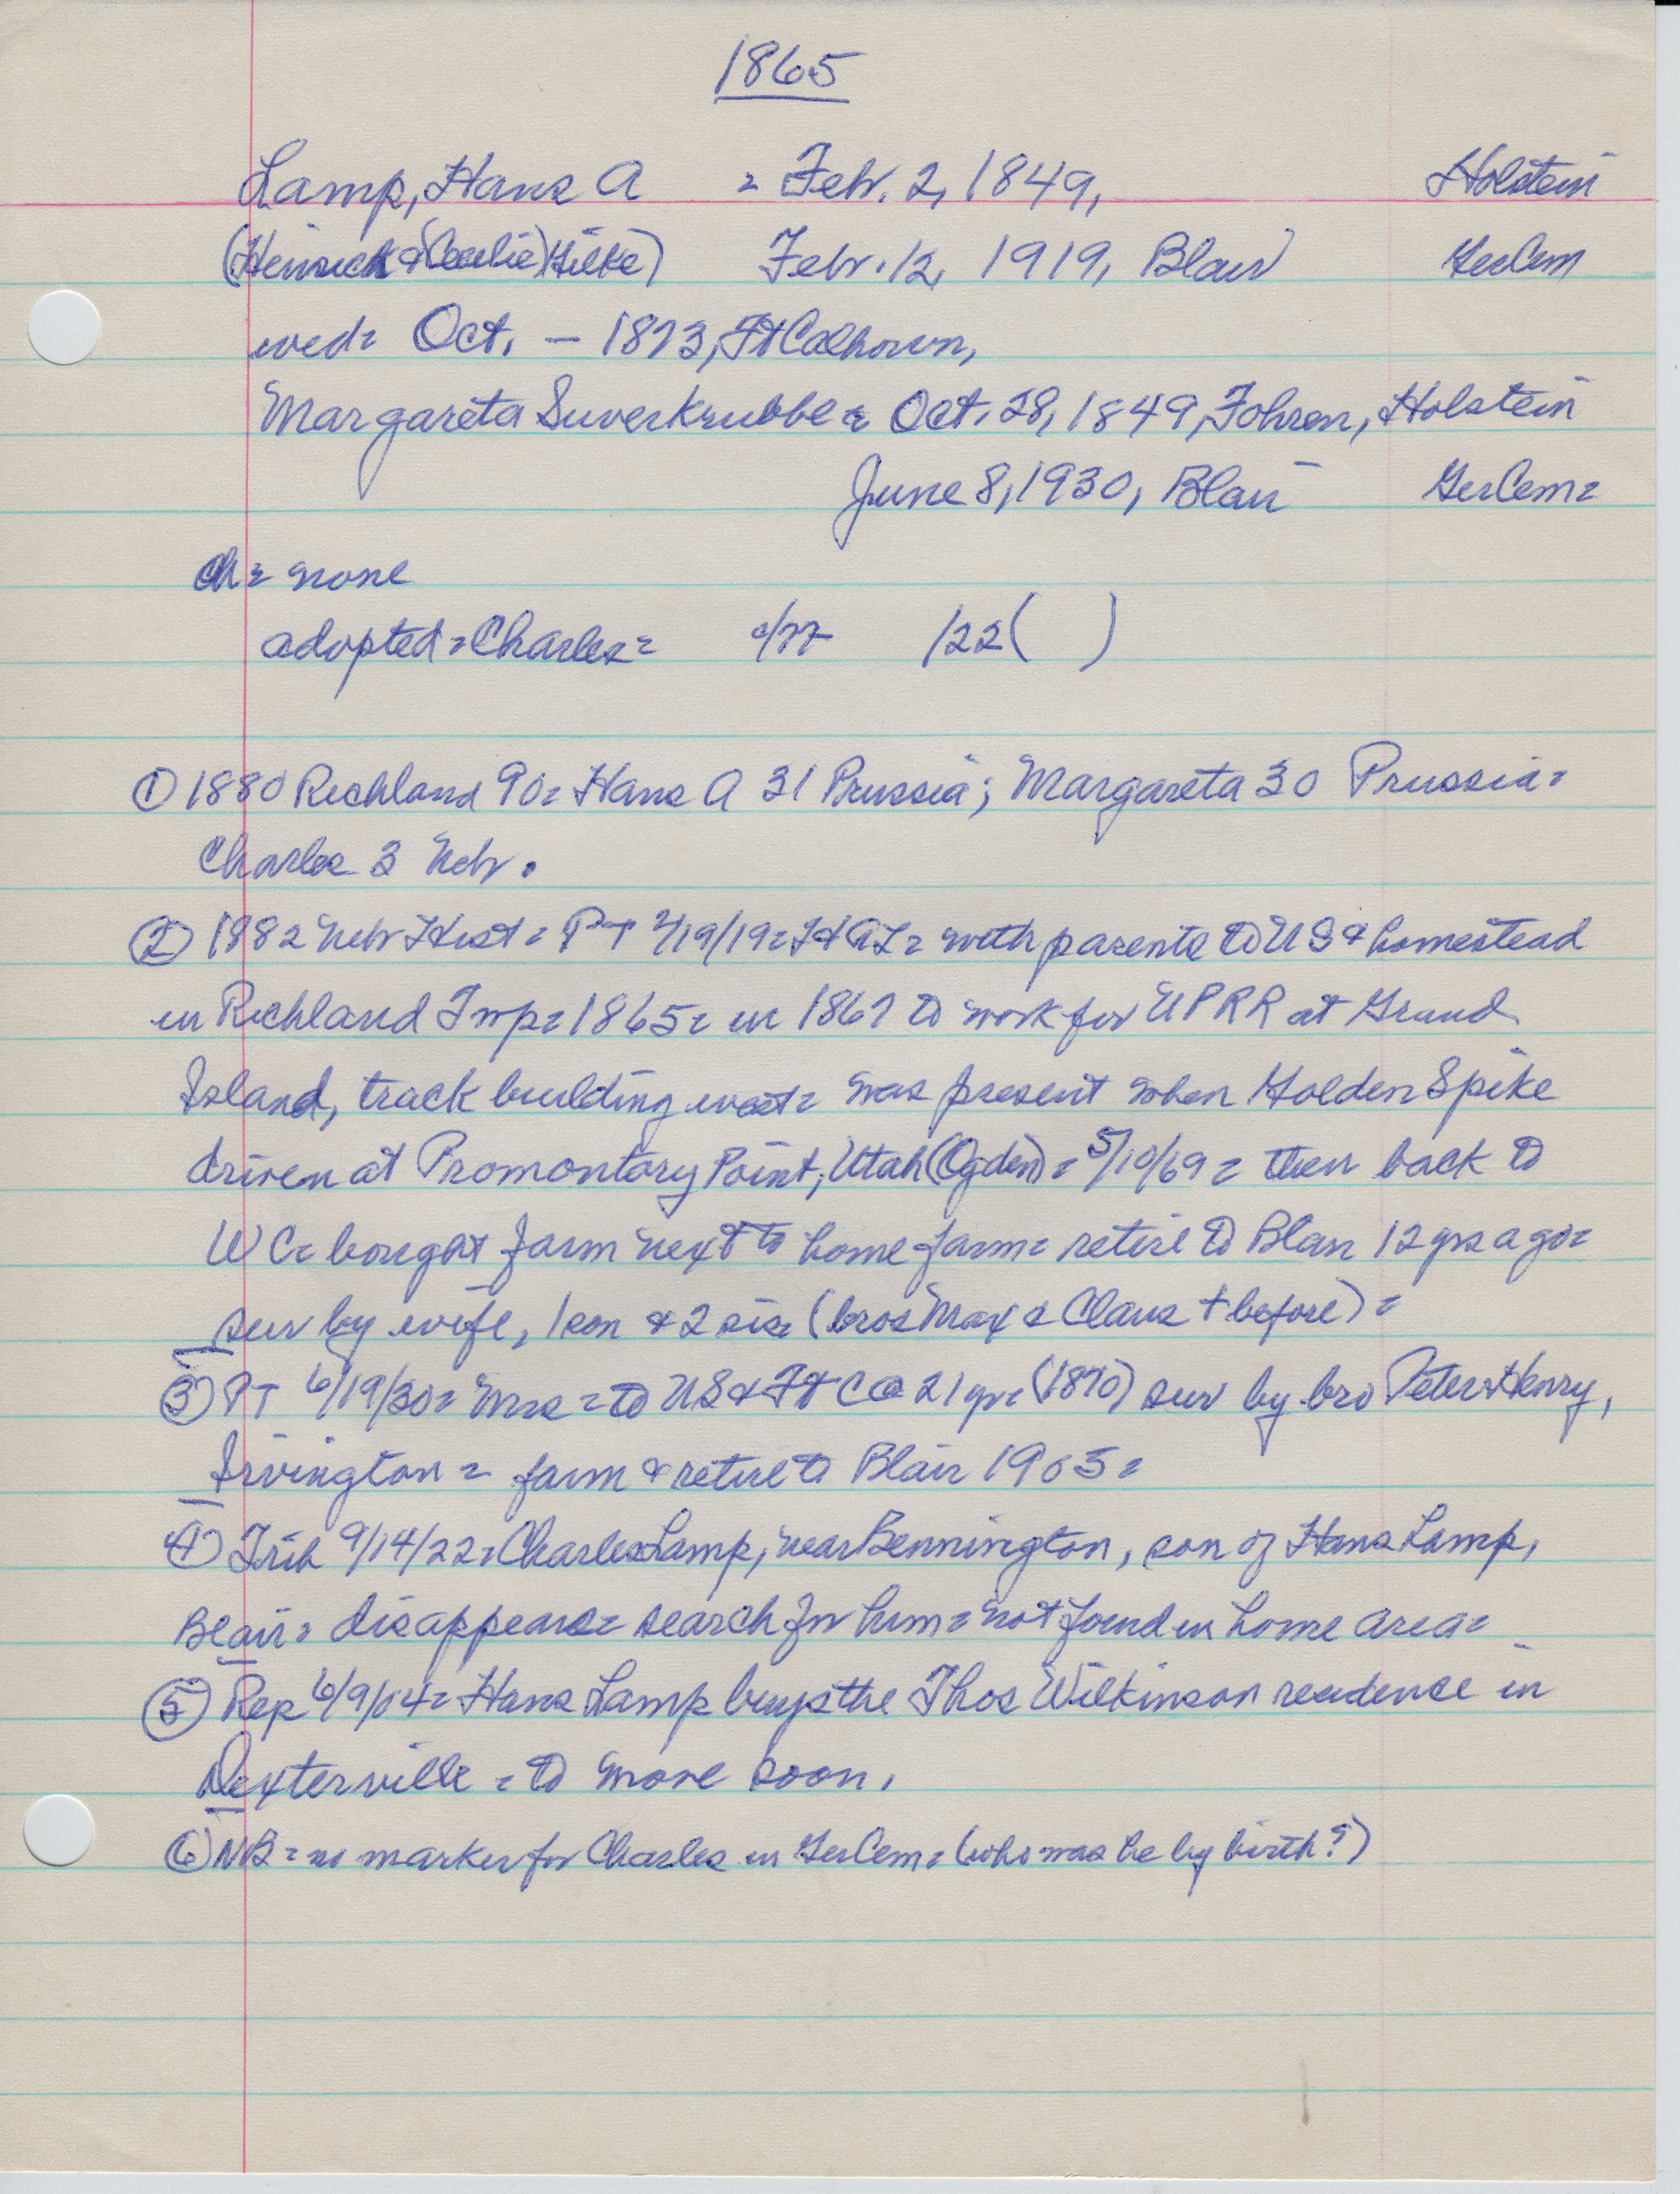 1865
Lamp, Hans A = Febr. 2, 1849, Holstein
(Heinrich & (Cecelie) Hilke) Febr. 12, 1919, Blair GerCem
wed= Oct. — 1873, Ft Calhoun,
Margareta Suverkrubbe = Oct. 28, 1849, Fohren, Holstein
June 8, 1930, Blair GerCem=
Ch= none
adopted=Charles= c/77 /22( )
① 1880 Richland 90= Hans A 31 Prussia; Margareta 30 Prussia=
Charles 3 Nebr.
② 1882 Nebr Hist= PT 2/19/19= = with parents to US & homestead
in Richland Twp= 1865= in 1867 to work for UPRR at Grand
Island, track building west= was present when Golden Spike
driven at Promontory Point, Utah (Ogden)= 5/10/69= then back to
WC= bought farm next to home farm= retire to Blair 12 yrs ago=
sur by wife, 1 son & 2 sis= (bros Max & Claus † before)=
③ PT 6/19/30= Mrs= to US & Ft C @ 21 yr= (1870) sur by bro Peter Henry,
Irvington= farm & retire to Blair 1905=
④ Trib 9/14/22= Charles Lamp, near Bennington, son of Hans Lamp,
Blair= disappears= search for him= not found in home area=
⑤ Rep 6/9/04= Hans Lamp buys the Thos Wilkinson residence in
Dexterville= to move soon.
⑥ NB= no marker for Charles in GerCem= (who was he by birth?)